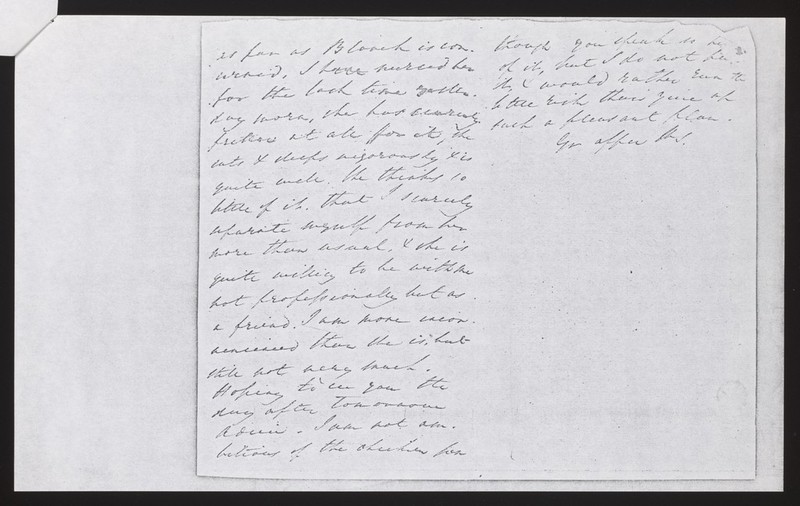 as far as Blanch is con-
cerned, I have nursed her
for the last time yester-
day morn, she has scarcely
at all from it, she
eats & sleeps vigorously & is
quite well. She thinks so
little of it that I scarcely
separate myself from her
more than usual, & she is
quite willing to be with me
not professionally but as
a friend. I am more incon-
venienced than she is, but
still not very much.
Hoping to see you the
day after tomorrow
adieu. I am not am-
bitious of the chicken pox
though you speak as if
of it, but I do not
it, & would rather run the
little risk than give up
such a pleasant plan.
Yr affec